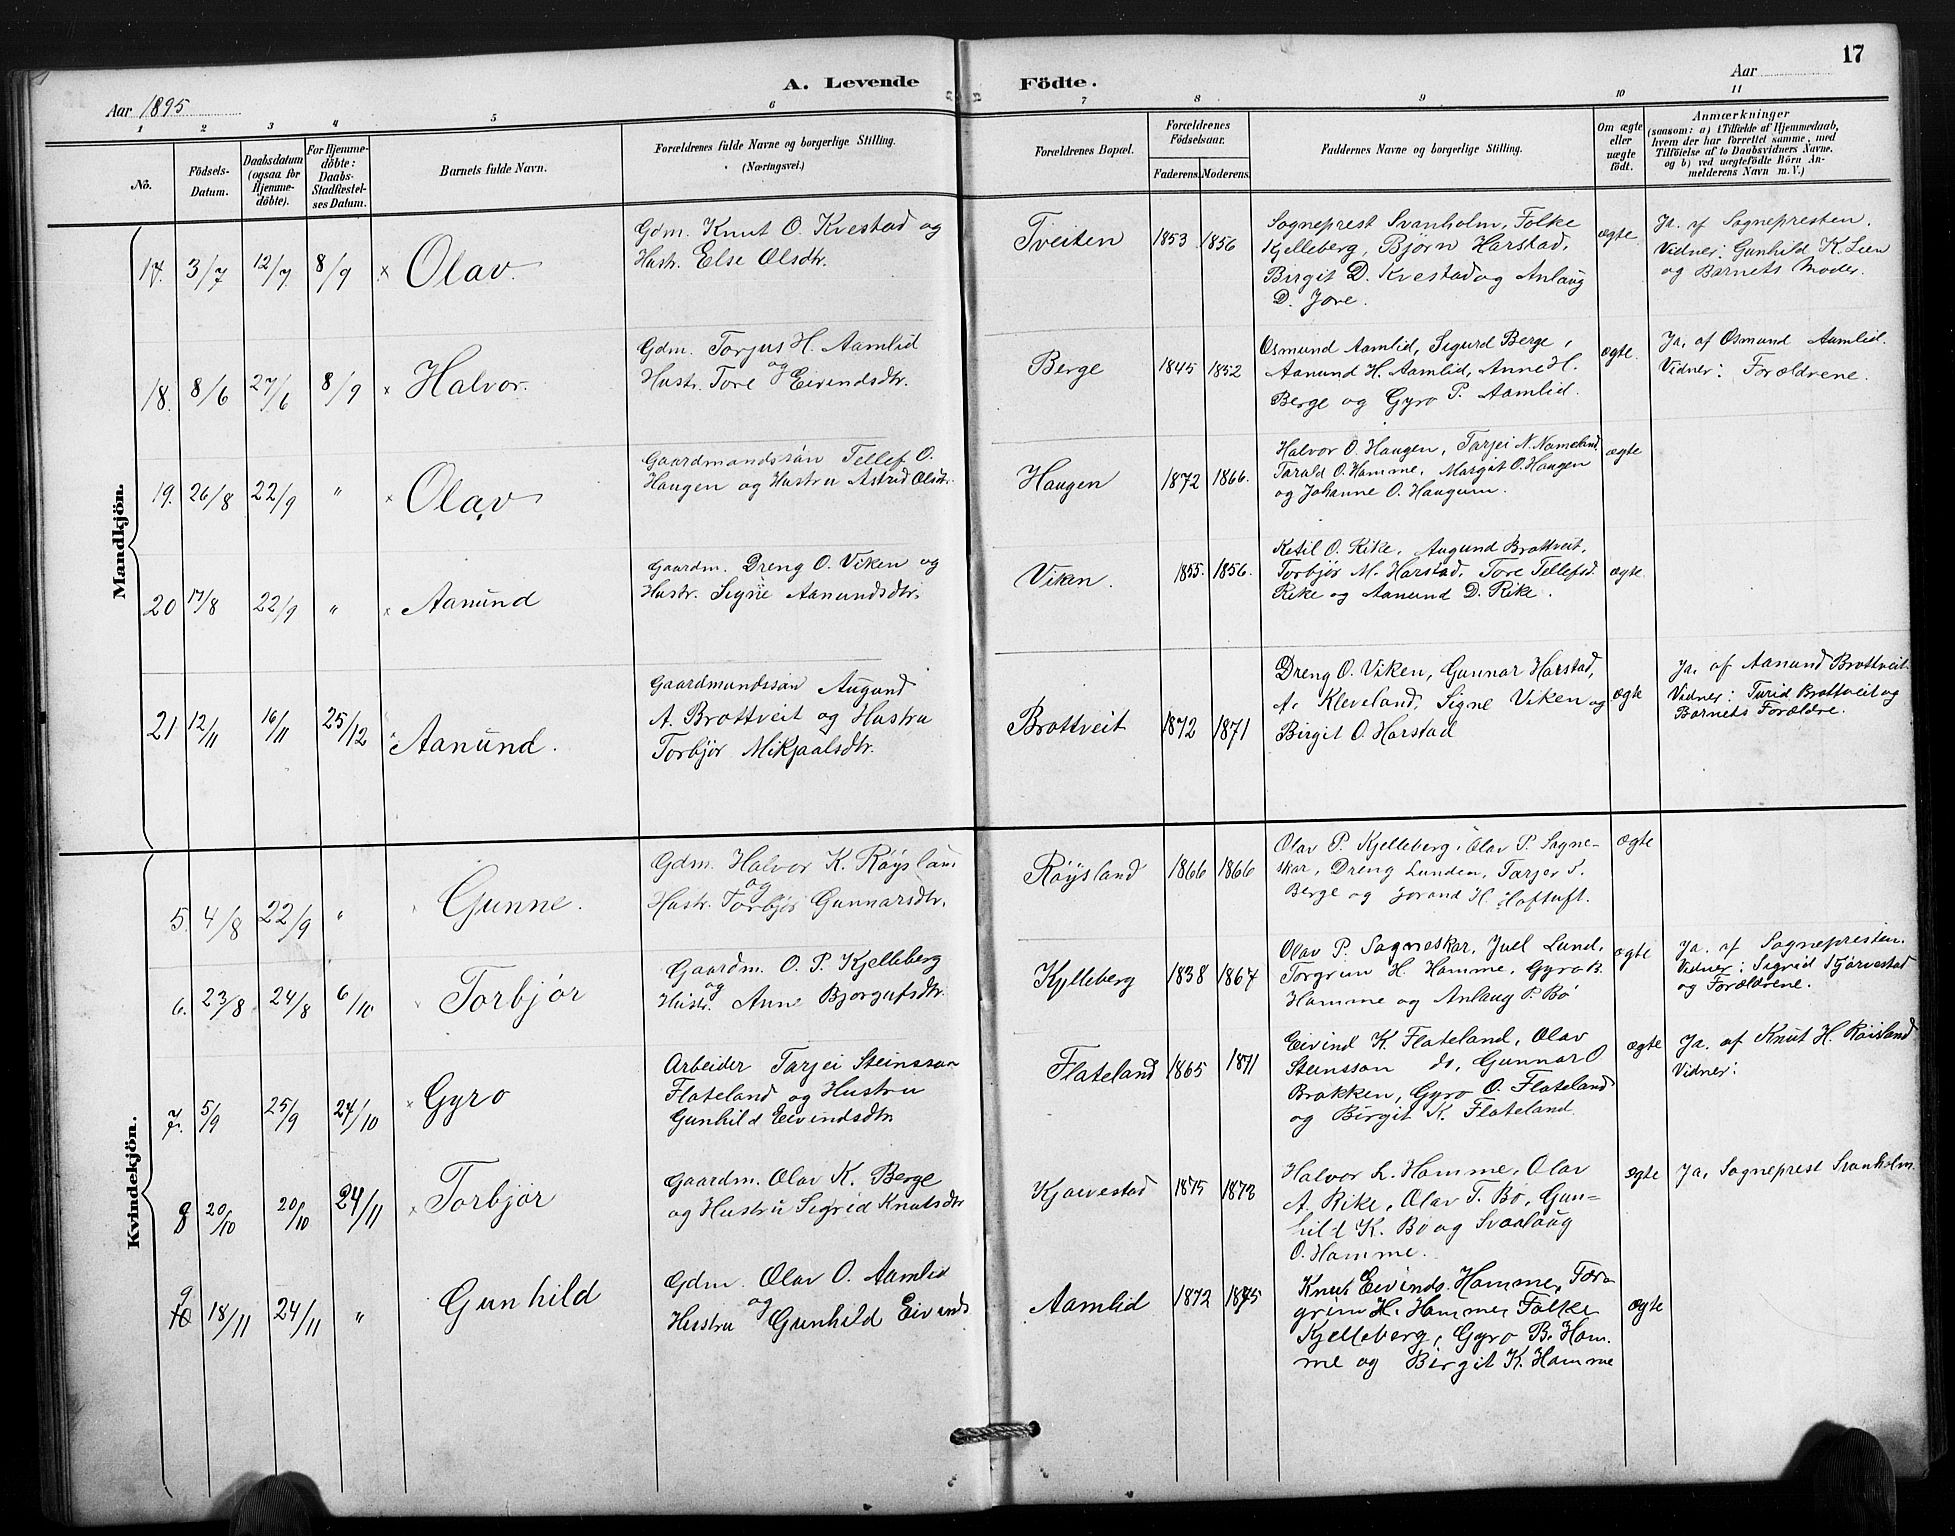 17
A. Levende Födte.
Aar 1895
Aar
1 2 3 4 5 6 7 8 9 10 11
No.
Födsels-
Datum.
Daabsdatum
(ogsaa for
Hjemme-
döbte).
For Hjemme-
döbte:
Daabs-
Stadfæstel-
ses Datum.
Barnets fulde Navn.
Forældrenes fulde Navne og borgerlige Stilling.
(Næringsvei.)
Forældrenes Bopæl.
Forældrenes
Födselsaar.
Faderens. Moderens.
Faddernes Navne og borgerlige Stilling.
Om ægte
eller
uægte
födt.
Anmærkninger
(saasom: a) i Tilfælde af Hjemmedaab,
hvem der har forrettet samme, med
Tilföielse af to Daabsvidners Navne,
og b) ved uægtefödte Börn An-
melderens Navn m. V.)
Mandkjön.
17. 3/7 12/7 8/9 × Olav.
Gdm. Knut O. Kvestad og
Hustr. Else Olsdtr.
Tveiten 1853 1856
Sogneprest Svanholm, Folke
Kjelleberg, Bjørn Harstad,
Birgit D. Kvestad og Anlaug
D. Jore.
ægte
Ja. af Sognepresten.
Vidner: Gunhild K. Lien
og Barnets Moder.
18. 8/6 27/6 8/9 × Halvor.
Gdm. Torjus H. Aamlid
og
Hustr. Tore Eivindsdtr.
Berge 1845 1852
Osmund Aamlid, Sigurd Berge,
Aanund H. Aamlid, Anne H.
Berge og Gyro P. Aamlid.
ægte.
Ja, af Osmund Aamlid.
Vidner: Forældrene.
19. 26/8 22/9 " × Olav
Gaardmandssøn Tellef O.
Haugen og Hustru Astrid Olsdtr.
Haugen 1872 1866.
Halvor O. Haugen, Tarjei N. Nomeland
Tarald O. Homme, Margit O. Haugen
og Johanne O. Haugum.
ægte
20 17/8 22/9 " × Aanund
Gaardm. Dreng O. Viken og
Hustr. Signe Aanundsdtr.
Viken. 1855. 1856.
Ketil O. Rike, Augund Brottveit,
Torbjør M. Harstad, Tore Tellefsd.
Rike og Aanund D. Rike.
ægte.
21 12/11 16/11 25/12 × Aanund.
Gaardmandssøn Augund
A. Brottveit og Hustru
Torbjør Mikjaalsdtr.
Brottveit 1872 1871
Dreng O. Viken, Gunnar Harstad,
A. Kleveland, Signe Viken og
Birgit O. Harstad
ægte
Ja, af Aanund Brottveit.
Vidner: Turid Brottveit og
Barnets Forældre.
Kvindekjön.
5. 4/8 22/9 " Gunne.
Gdm. Halvor K. Røysland
og
Hustr. Torbjør Gunnarsdtr.
Røysland 1866 1866
Olav P. Kjelleberg, Olav P. Sagne-
skar, Dreng Lunden, Tarjei T.
Berge og Jorand H. Hoftuft.
ægte
6. 23/8 24/8 6/10 Torbjør
Gaardm. O. P. Kjelleberg
og
Hustr. Anne Bjorgufsdtr.
Kjelleberg 1838 1864
Olav P. Sagneskar, Juel Lund,
Torgrim H. Homme, Gyro B.
Homme og Anlaug P. Bø
ægte
Ja. af Sognepresten.
Vidner: Sigrid Kjørvestad
og Forældrene.
7. 5/9 25/9 24/10 × Gyro
Arbeider Tarjei Steinsson
Flateland og Hustru
Gunhild Eivindsdtr
Flateland 1865 1871
Eivind K. Flateland, Olav
Steinsson do, Gunnar O
Brokken, Gyro O. Flateland
og Birgit K. Flateland.
ægte
Ja. af Knut H. Røisland
Vidner:
8 20/10 20/10 24/11 × Torbjør
Gaardm. Olav K. Berge
og Hustru Sigrid Knutsdtr
Kjørvestad 1875 1873
Halvor L. Homme, Olav
A. Rike, Olav T. Bø, Gun-
hild K. Bø og Svaalaug
O. Homme.
ægte
Ja, Sogneprest Svanholm.
9
10 18/11 24/11 " Gunhild
Gdm. Olav O. Aamlid
og
Hustru Gunhild Eivinds
Aamlid 1872 1875
Knut Eivinds. Homme, Tor-
grim H. Homme, Folke
Kjelleberg, Gyro B. Hom-
me og Birgit K. Homme
ægte